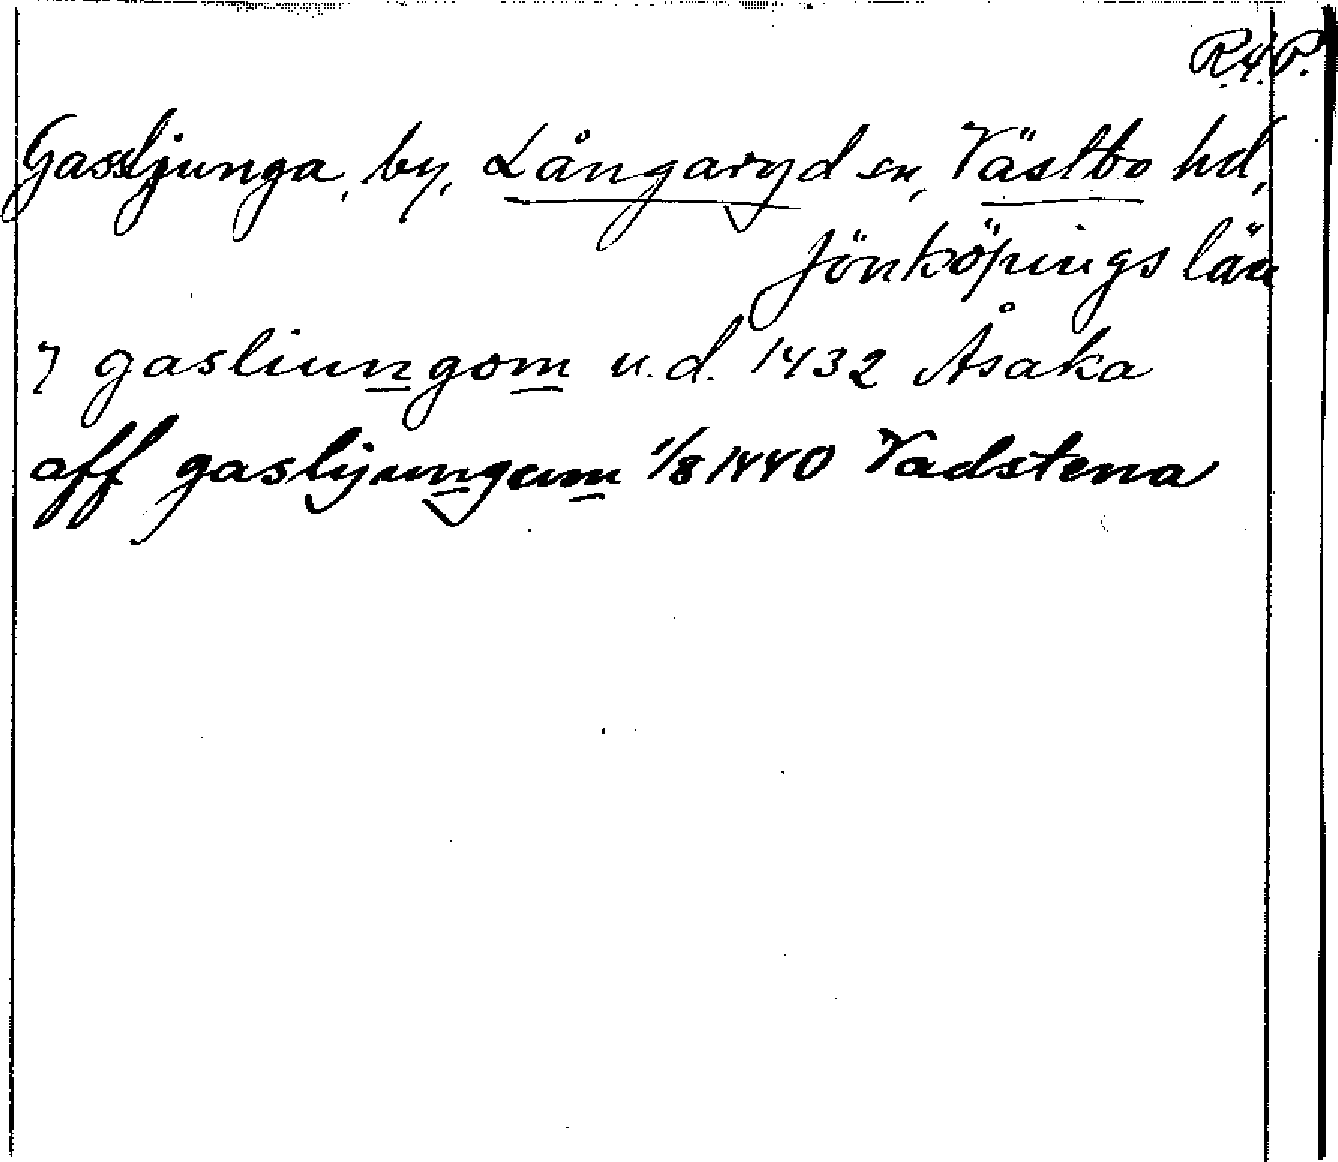 R.A.P.
Gassljunga, by, Långaryd sn, Västbo hd,
Jönköpings län
J gasliungom u.d. 1432 Åsaka
aff gaslyungum 1/8 1440 Vadstena